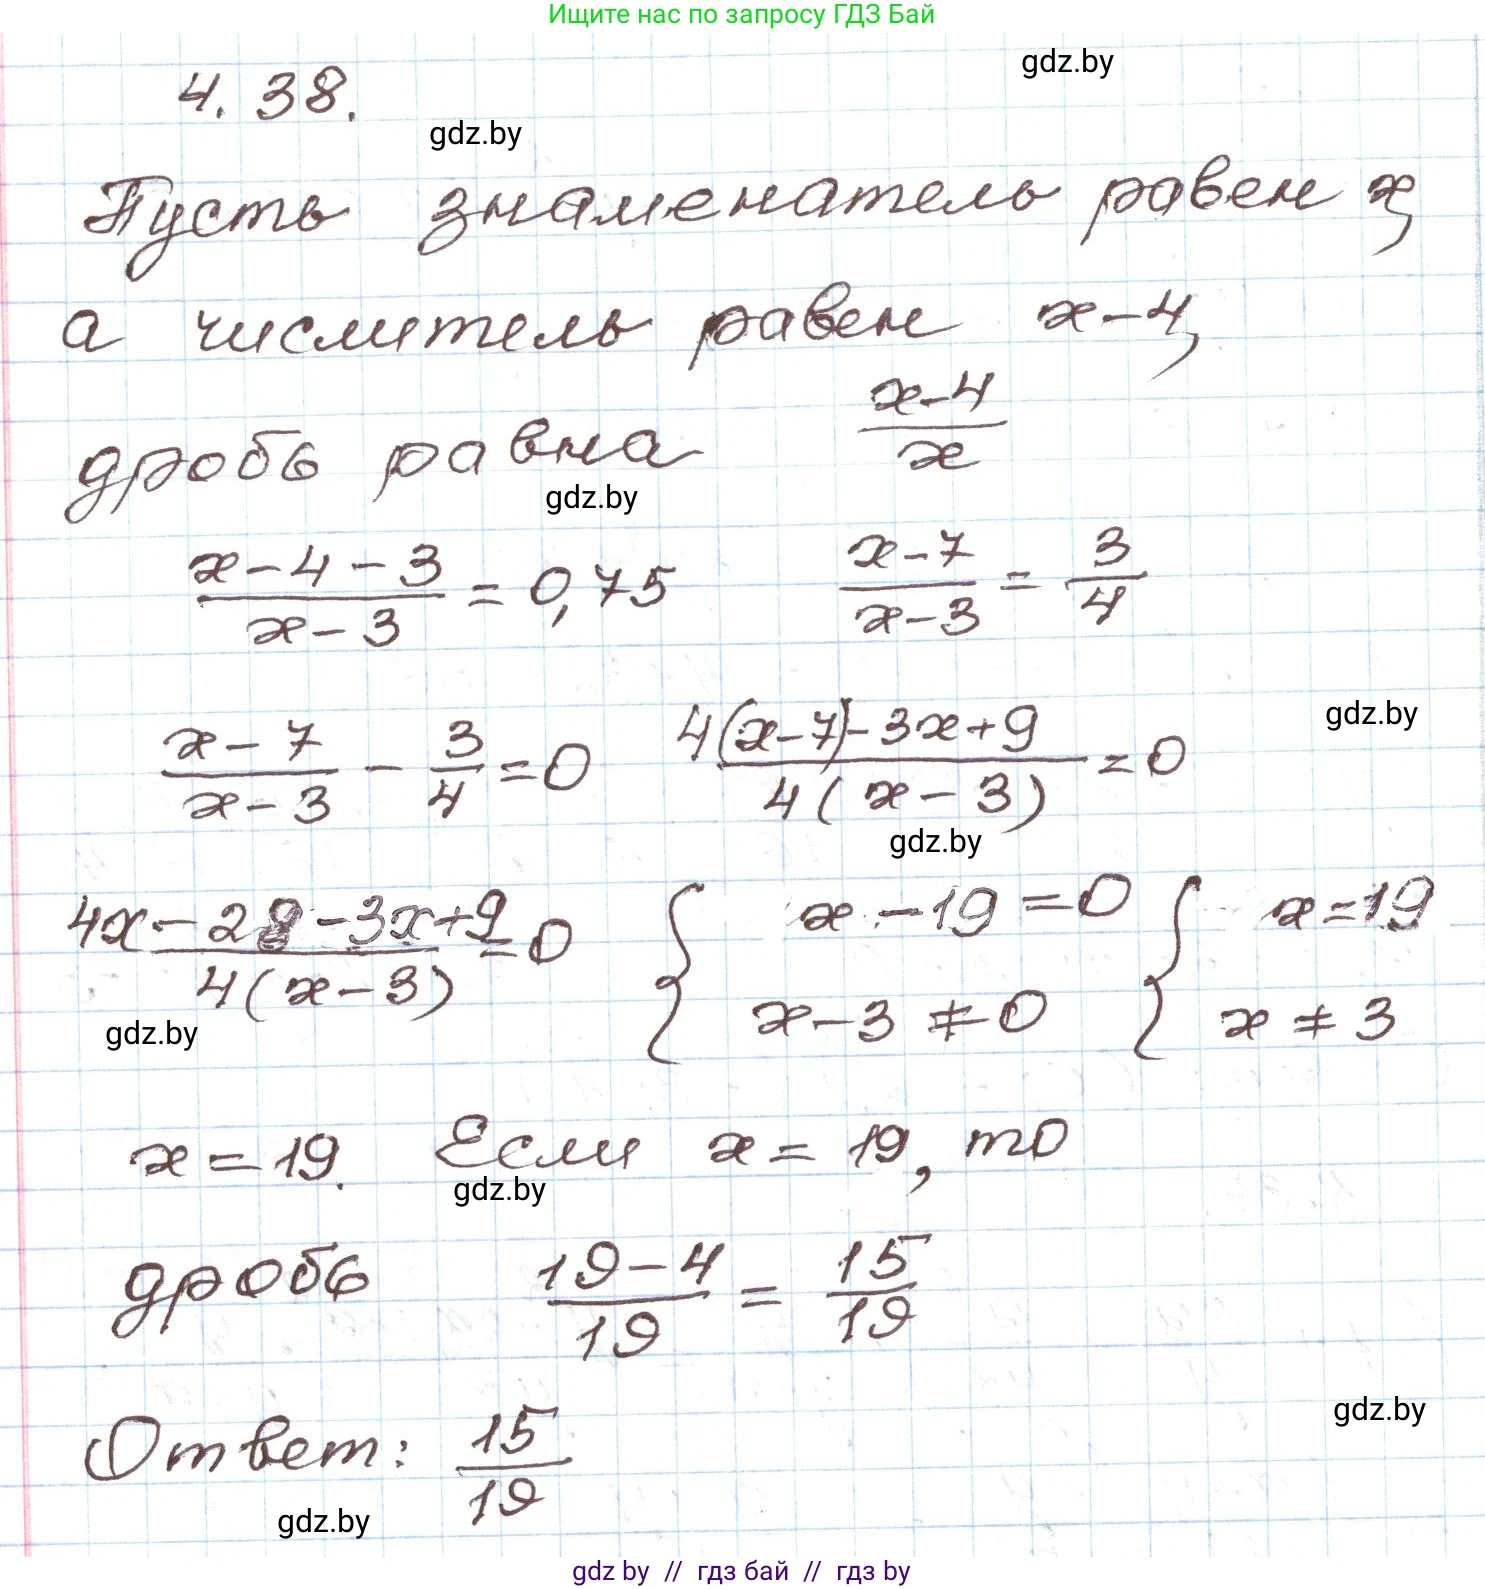 Ищите нас по запросу ГДЗ Бай
gdz.by
4.38.
gdz.by
Пусть знаменатель равен x,
а числитель равен x-4,
дробь равна (x-4)/x
gdz.by
(x-4-3)/(x-3) = 0,75 (x-7)/(x-3) = 3/4
gdz.by
(x-7)/(x-3) - 3/4 = 0 (4(x-7)-3x+9)/(4(x-3)) = 0
gdz.by
(4x-28-3x+9)/(4(x-3)) = 0 { x-19=0 { x=19
x-3≠0 x≠3
gdz.by
x=19. Если x=19, то
gdz.by
дробь (19-4)/19 = 15/19
gdz.by
Ответ: 15/19
gdz.by
gdz by // гдз бай // гдз by